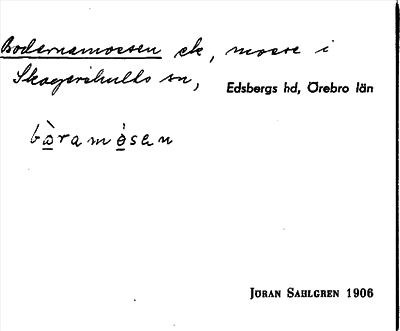 Bodarnamossen ek, mosse i
Skagershults sn,
Edsbergs hd, Örebro län
bàramȯsen
JÖRAN SAHLGREN 1906